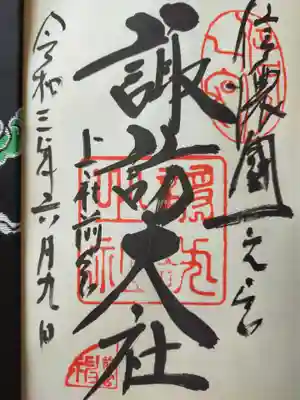 信濃國一之宮
諏訪大社
上社前宮
令和三年六月九日